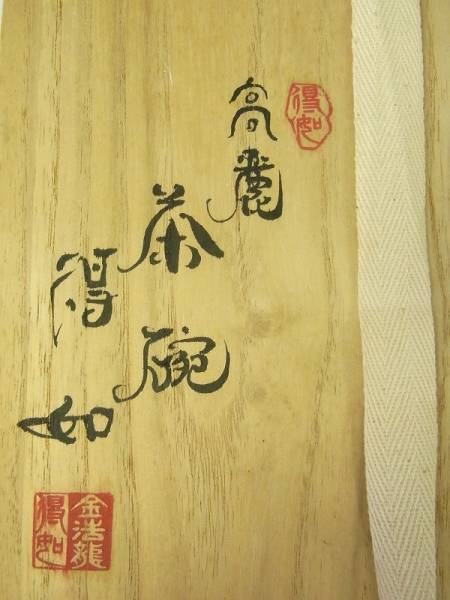 得如
高麗
茶碗
得如
金浩龍
得如